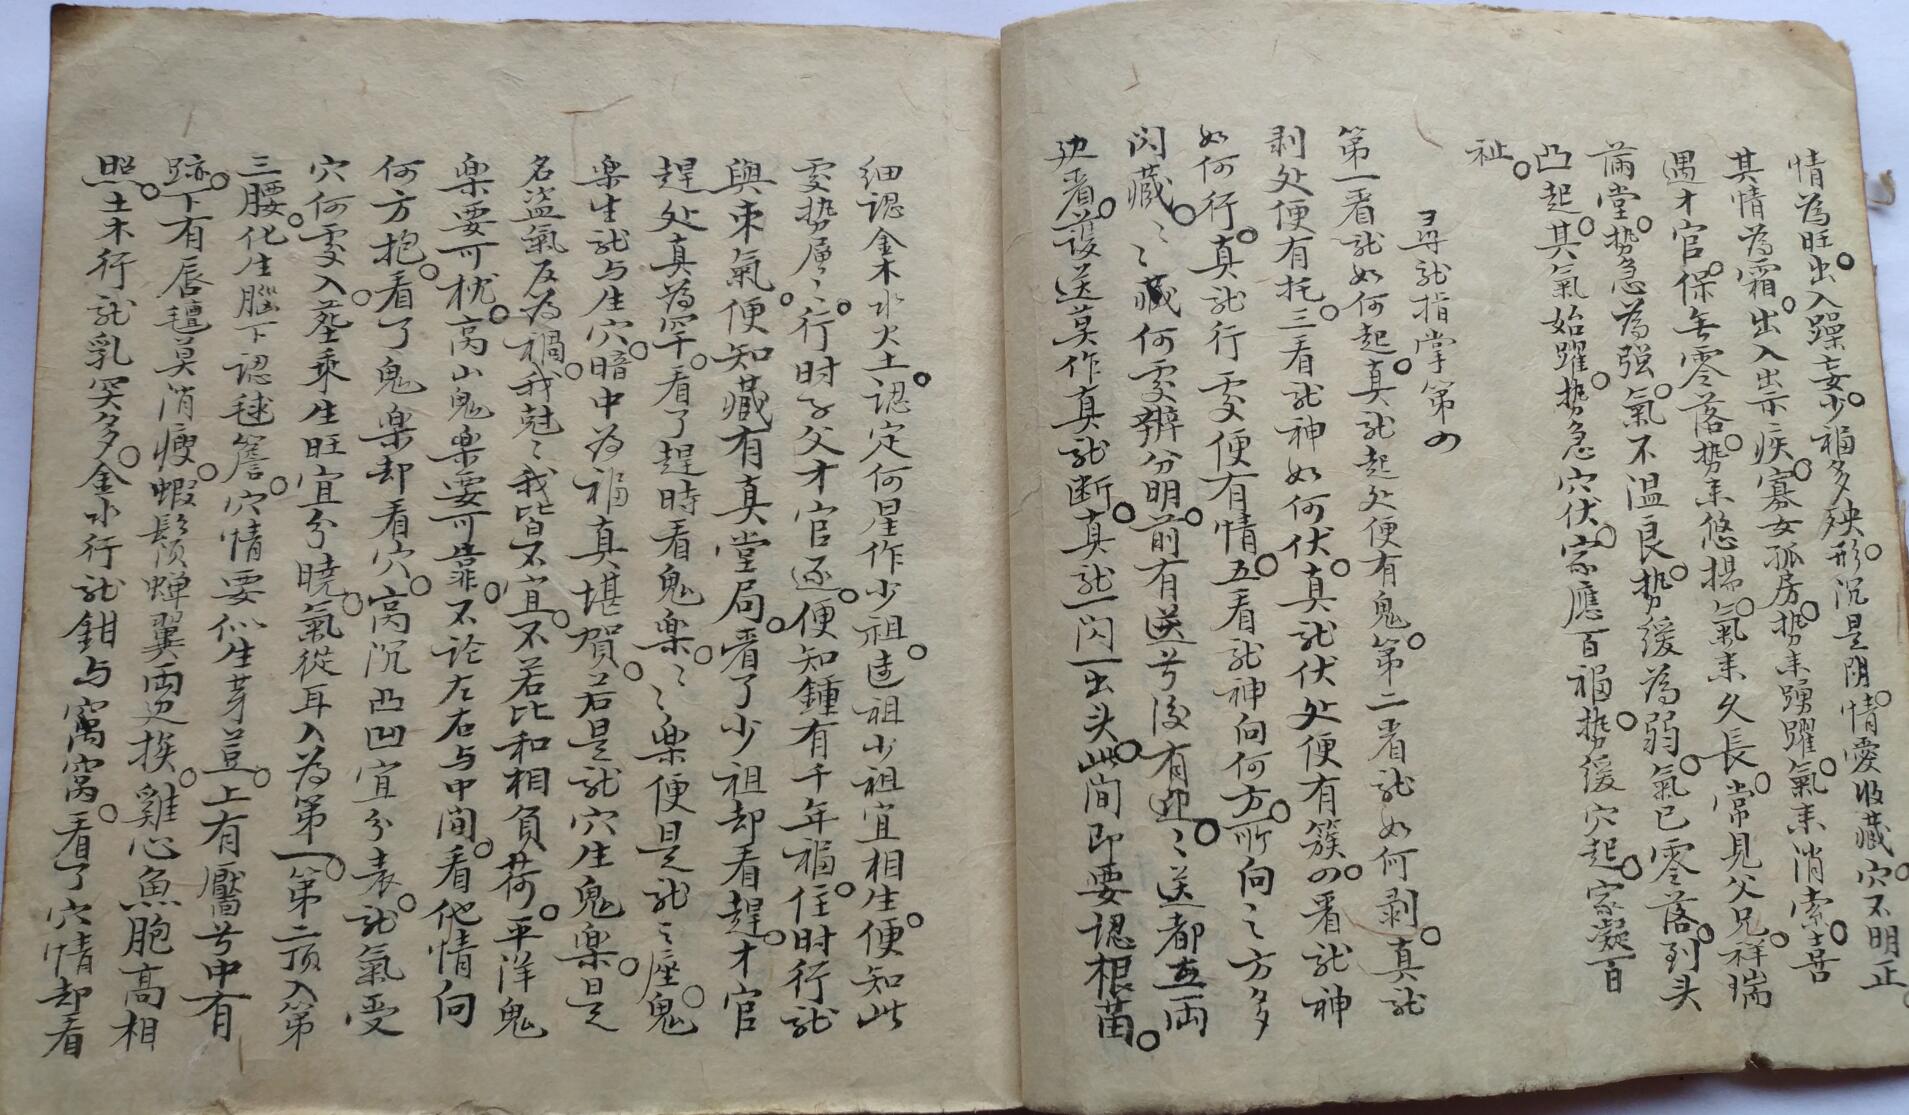 情為旺。出入躁妄。少福多殃。形沉是阴。情愛收藏。穴不明正。
其情為霜。出入出示疾。寡女孤房。势来踴躍。氣来消索。喜
遇才官。保無零落。势来悠揚。氣来久長。常見父兄。祥瑞
滿堂。势急為强。氣不温良。势缓為弱。氣已零落。到头
凸起。其氣始躍。势急穴伏。家應百福。势缓穴起。家凝百
祉。
尋龙指掌第四
第一看龙如何起。真龙起处便有鬼。第二看龙如何剥。真龙
剥处便有托。三看龙神如何伏。真龙伏处便有簇。四看龙神
如何行。真龙行處便有情。五看龙神向何方。所向之方多
闪藏。〻〻藏何處辨分明。前有送兮後有迎。〻送都在両
边看。護送莫作真龙断。真龙一闪一出头。此间即要認根苗。
细認金木水火土。認定何星作少祖。遠祖少祖宜相生。便知此
處势層〻。行时子父才官逐。便知鍾有千年福。住时行龙
與束氣。便知藏有真堂局。看了少祖却看趕。才官
趕处真為罕。看了趕時看鬼樂。〻〻樂便是龙之座。鬼
樂生龙与生穴。暗中為福真堪賀。若是龙穴生鬼樂。是
名盗氣反為禍。我尅〻我皆不宜。不若比和相負荷。平洋鬼
樂要可枕。高山鬼樂要可靠。不论左右与中间。看他情向
何方抱。看了鬼樂却看穴。窝沉凸凹宜分表。龙氣受
穴何處入。塟乘生旺宜分曉。氣從耳入為第一。第二顶入第
三腰。化生腦下認毬簷。穴情要似生芽荳。上有靨兮中有
跡。下有唇氊莫消瘦。蝦鬚蟬翼両边挨。雞心魚胞高相
照。土木行龙乳突多。金水行龙鉗与窩窩。看了穴情却看